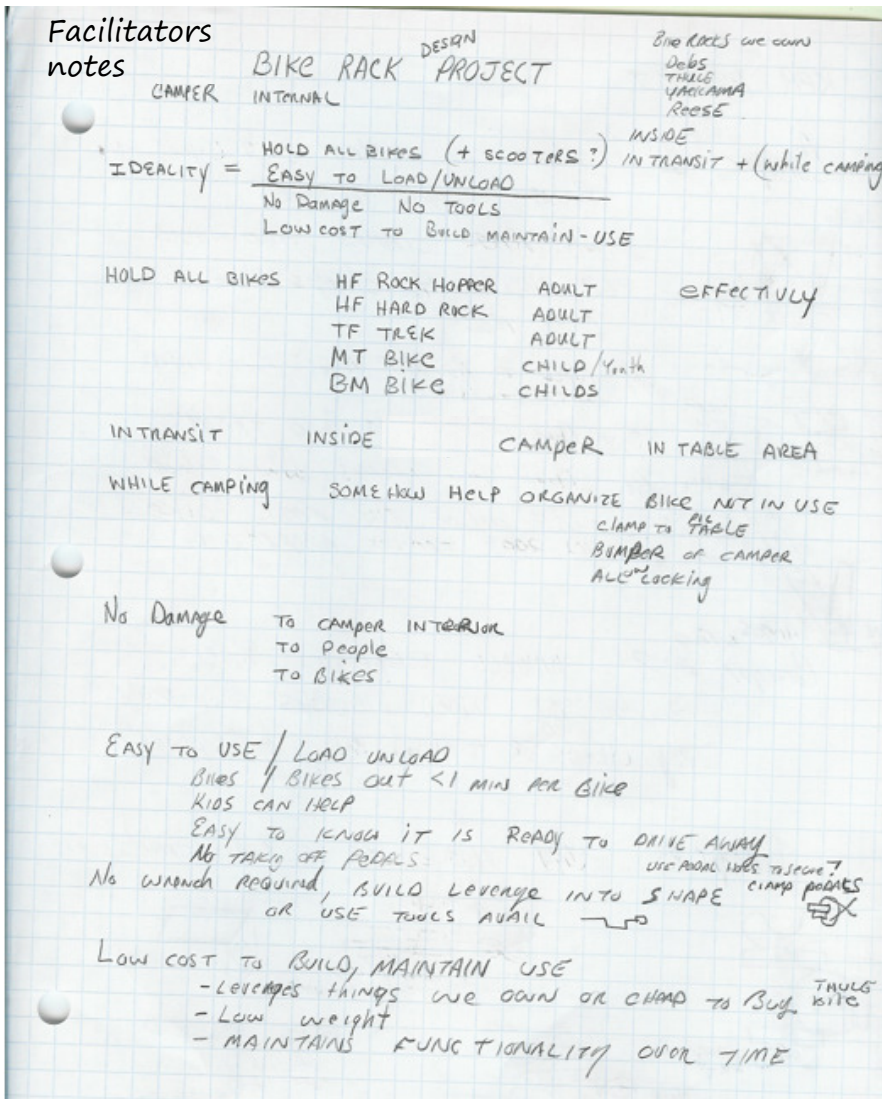 Facilitators
notes
BIKE RACK DESIGN PROJECT
CAMPER INTERNAL
Bike Racks we own
Debs
THULE
YAKKAMA
REESE
IDEALITY = HOLD ALL BIKES (+ SCOOTERS?) INSIDE IN TRANSIT + (while CAMPING
EASY TO LOAD/UNLOAD
No Damage No TOOLS
LOW COST TO BUILD MAINTAIN - USE
HOLD ALL BIKES HF ROCK HOPPER ADULT EFFECTIVLY
HF HARD ROCK ADULT
TF TREK ADULT
MT BIKE CHILD/Youth
BM BIKE CHILDS
IN TRANSIT INSIDE CAMPER IN TABLE AREA
WHILE CAMPING SOMEHOW HELP ORGANIZE BIKE NOT IN USE
CLAMP TO PIC TABLE
BUMPER OF CAMPER
ALL locking
No Damage TO CAMPER INTERIOR
TO People
TO BIKES
EASY TO USE / LOAD UNLOAD
Bikes / BIKES OUT <1 MIN PER BIKE
KIDS CAN HELP
EASY TO KNOW IT IS READY TO DRIVE AWAY
No TAKIG OFF PEDALS
USE PEDAL HOLES TO SECURE?
CLAMP PEDALS
No WRENCH REQUIRED, BUILD LEVERAGE INTO SHAPE
OR USE TOOLS AVAIL
LOW COST TO BUILD, MAINTAIN USE
- Leverages things we own or CHEAP TO BUY THULE BITE
- Low weight
- MAINTAINS FUNCTIONALITY OVER TIME